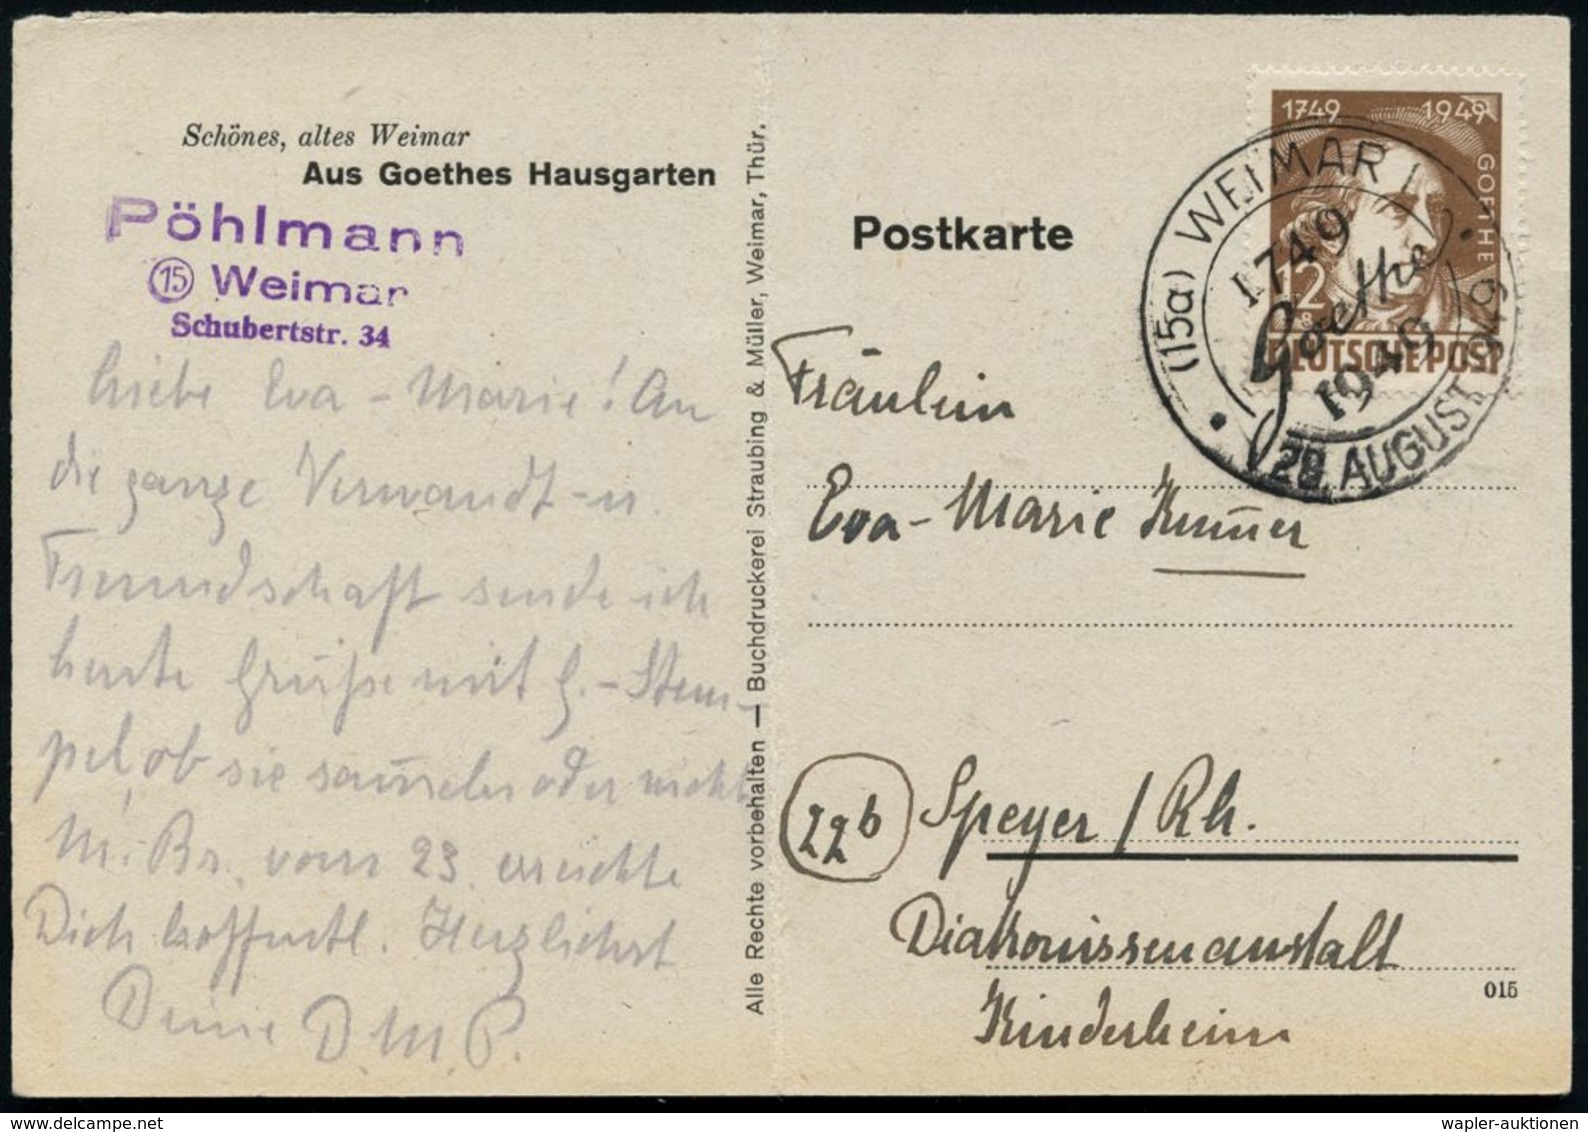 Schönes, altes Weimar
Aus Goethes Hausgarten
Pöhlmann
15 Weimar
Schubertstr. 34
Liebe Eva-Marie! An
die ganze Verwandt- u.
Freundschaft sende ich
heute Grüße mit G.-Stem-
pel, ob sie sam̄eln oder nicht
M. Br. vom 23. erreichte
Dich hoffentl. Herzlichst
Deine D M P.
Alle Rechte vorbehalten — Buchdruckerei Straubing & Müller, Weimar, Thür.
Postkarte
1749 1949
GOETHE
12
+8
DEUTSCHE POST
(15a) WEIMAR 1
1749
Goethe
1949
28. AUGUST 49
Fräulein
Eva-Marie
22b Speyer / Rh.
Diakonissenanstalt
Kinderheim
015
wapler-auktionen